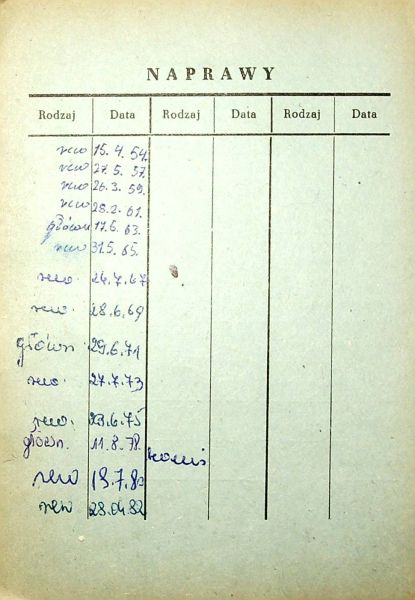 NAPRAWY
Rodzaj Data Rodzaj Data Rodzaj Data
rew 15.4.54.
rew 27.5.57.
rew 26.3.59.
rew 28.2.61.
główn 17.6.63.
rew 31.5.65.
rew. 26.7.67
rew. 28.6.69
główn. 29.6.71
rew. 27.7.73
rew. 23.6.75
główn. 11.8.78.
rew 13.7.80
rew 28.04.82